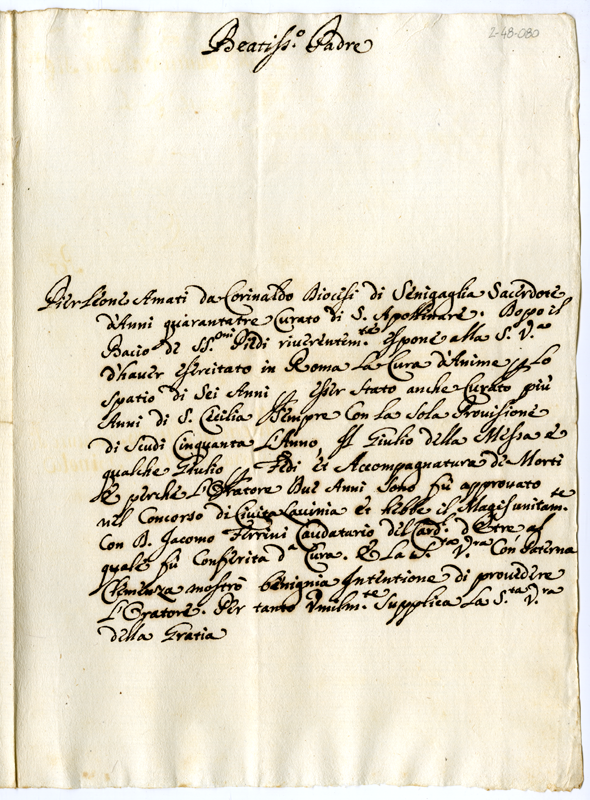 2-48-080
Beatiss.o Padre
Pierleone Amati da Corinaldo Diocesi di Senigaglia Sacerdote
d'Anni quarantatre Curato di S. Apollinare. Doppo il
Bacio de SS.mi Piedi riuerentem.te espone alla S. V.ra
d'hauer esercitato in Roma La Cura d'Anime p Lo
spatio di Sei Anni, p esser stato anche Curato più
Anni di S. Cecilia Sempre Con La Sola Prouisione
di Scudi Cinquanta L'Anno, Il Giulio della Messa e
qualche Giulio p Fedi et Accompagnatura de Morti
E perche L'Oratore Due Anni Sono fù approuato
nel Concorso di Ciuita Lauinia et hebbe il Magis unitam.te
Con D. Jacomo Ferrini Caudatario del Card. d'Etrè, al
quale fù Conferita d.a Cura. E La S.tà V.ra Con Paterna
Clemenza mostrò benignia Intentione di prouedere
L'Oratore. Per tanto Vmilm.te Supplica La S.tà V.ra
della Gratia